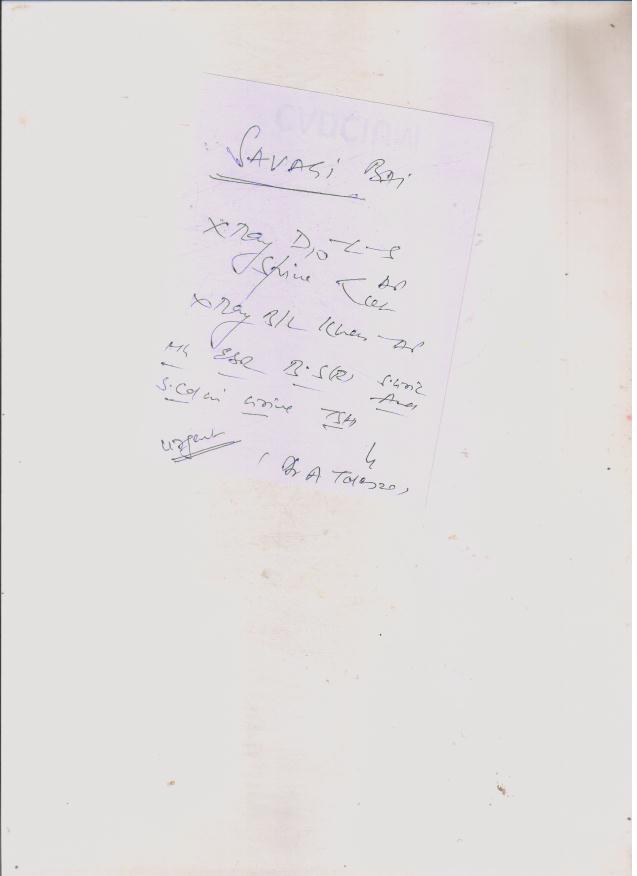 SAVASI Bai
X Ray D10-L-S
Spine < AP
Lat
X Ray B/L Knee - AP
Hb ESR B.S(R) S.Uric Acid
S.Calci Urine TSH
Urgent
(Dr A